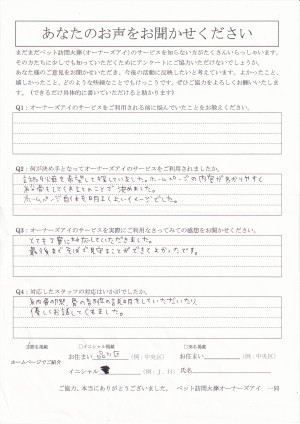 あなたのお声をお聞かせください
まだまだペット訪問火葬(オーナーズアイ)のサービスを知らない方がたくさんいらっしゃいます。
その方たちに少しでも知っていただくためにアンケートにご協力いただけないでしょうか。
あなた様のご意見をお聞かせいただき、今後の活動に反映したいと考えています。よかったこと、
嬉しかったこと、どのような些細なことでもけっこうです。ぜひご協力をよろしくお願いいたします。(できるだけ具体的に書いていただけると助かります)
Q1：オーナーズアイのサービスをご利用される前に悩んでいたことをお教えください。
Q2：何が決め手となってオーナーズアイのサービスをご利用されましたか。
訪問火葬を希望して探していました。ホームページの内容がわかりやすく
してくれるとのことで決めました。
ホームページ自体も明るくよいイメージでした。
Q3：オーナーズアイのサービスを実際にご利用なさってみての感想をお聞かせください。
とても丁寧に対応していただきました。
最後までそばで見守ることができてよかったです。
Q4：対応したスタッフの対応はいかがでしたか。
納骨の際、骨の各部位の説明をしていただいたり
優しくお話してくれました。
匿名掲載 □イニシャル掲載 □実名掲載
ホームページでご紹介
お住まい 品川区 (例：中央区) お住まい (例：中央区)
イニシャル (例：J．H) 氏名
ご協力、本当にありがとうございました。 ペット訪問火葬オーナーズアイ 一同